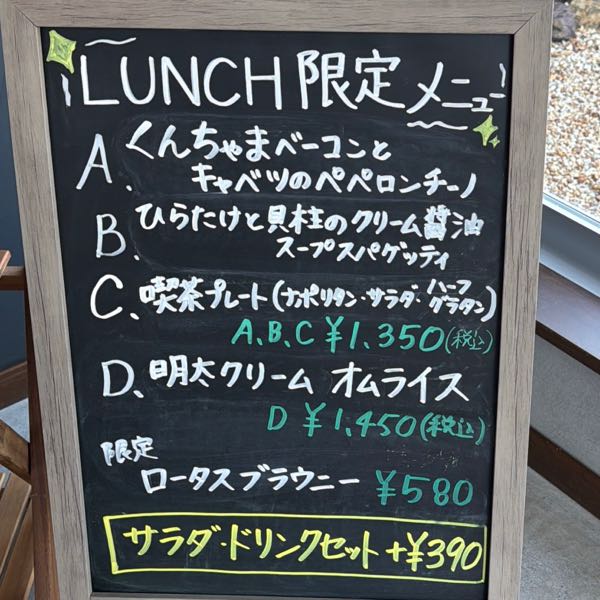 LUNCH 限定 メニュー
A. くんちゃまベーコンと
キャベツのペペロンチーノ
B. ひらたけと貝柱のクリーム醤油
スープスパゲッティ
C. 喫茶プレート(ナポリタン・サラダ・ハーフグラタン)
A,B,C ¥1,350(税込)
D. 明太クリーム オムライス
D ¥1,450(税込)
限定
ロータスブラウニー ¥580
サラダ・ドリンクセット +¥390